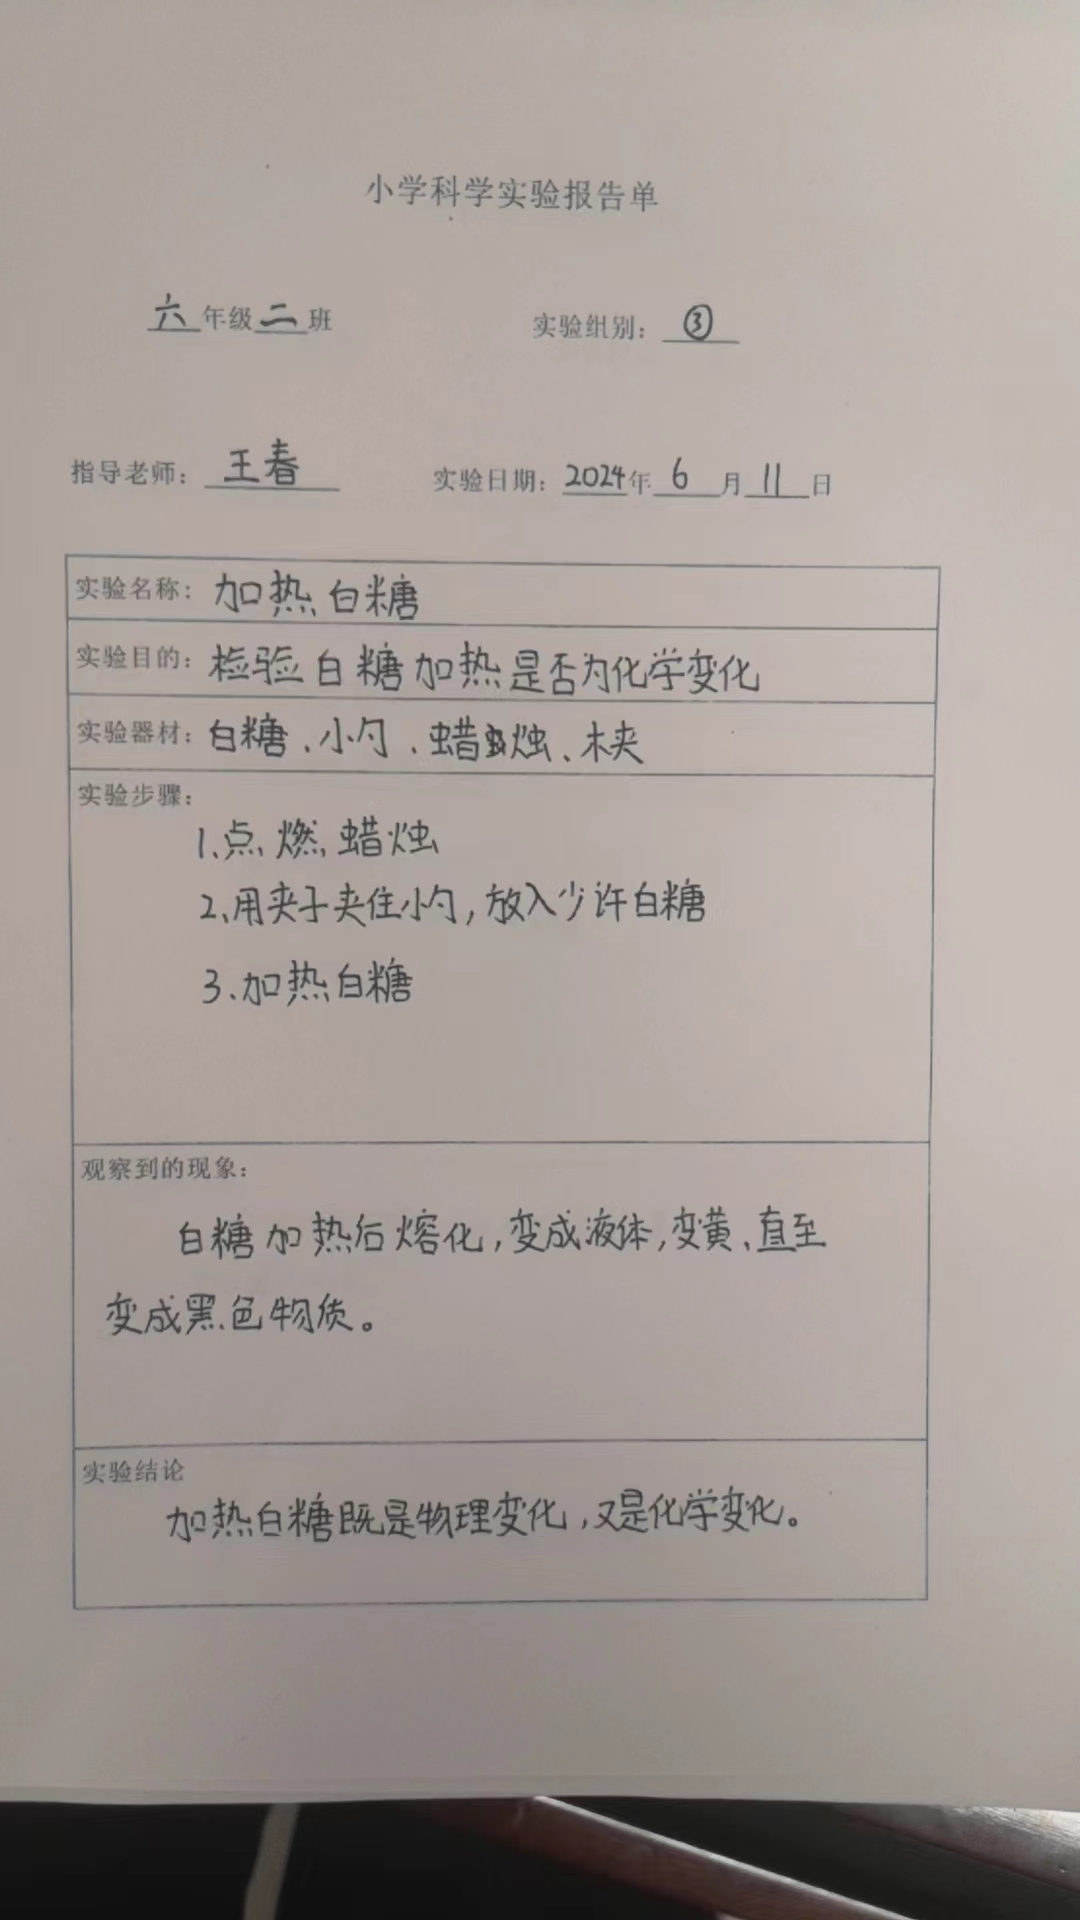 小学科学实验报告单
六年级二班 实验组别：③
指导老师：王春 实验日期：2024年6月11日
实验名称：加热白糖
实验目的：检验白糖加热是否为化学变化
实验器材：白糖、小勺、蜡烛、木夹
实验步骤：
1、点燃蜡烛
2、用夹子夹住小勺，放入少许白糖
3、加热白糖
观察到的现象：
白糖加热后熔化，变成液体，变黄、直至
变成黑色物质。
实验结论
加热白糖既是物理变化，又是化学变化。